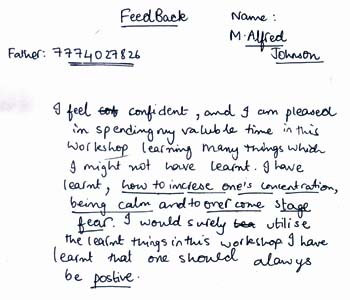 FeedBack
Name :
M. Alfred
Johnson
Father: 7774027826
I feel confident, and I am pleased
in spending my valuble time in this
workshop learning many things which
I might not have learnt. I have
learnt, how to increse one's concentration,
being calm and to over come stage
fear. I would surely utilise
the learnt things in this workshop I have
learnt that one should always
be postive.